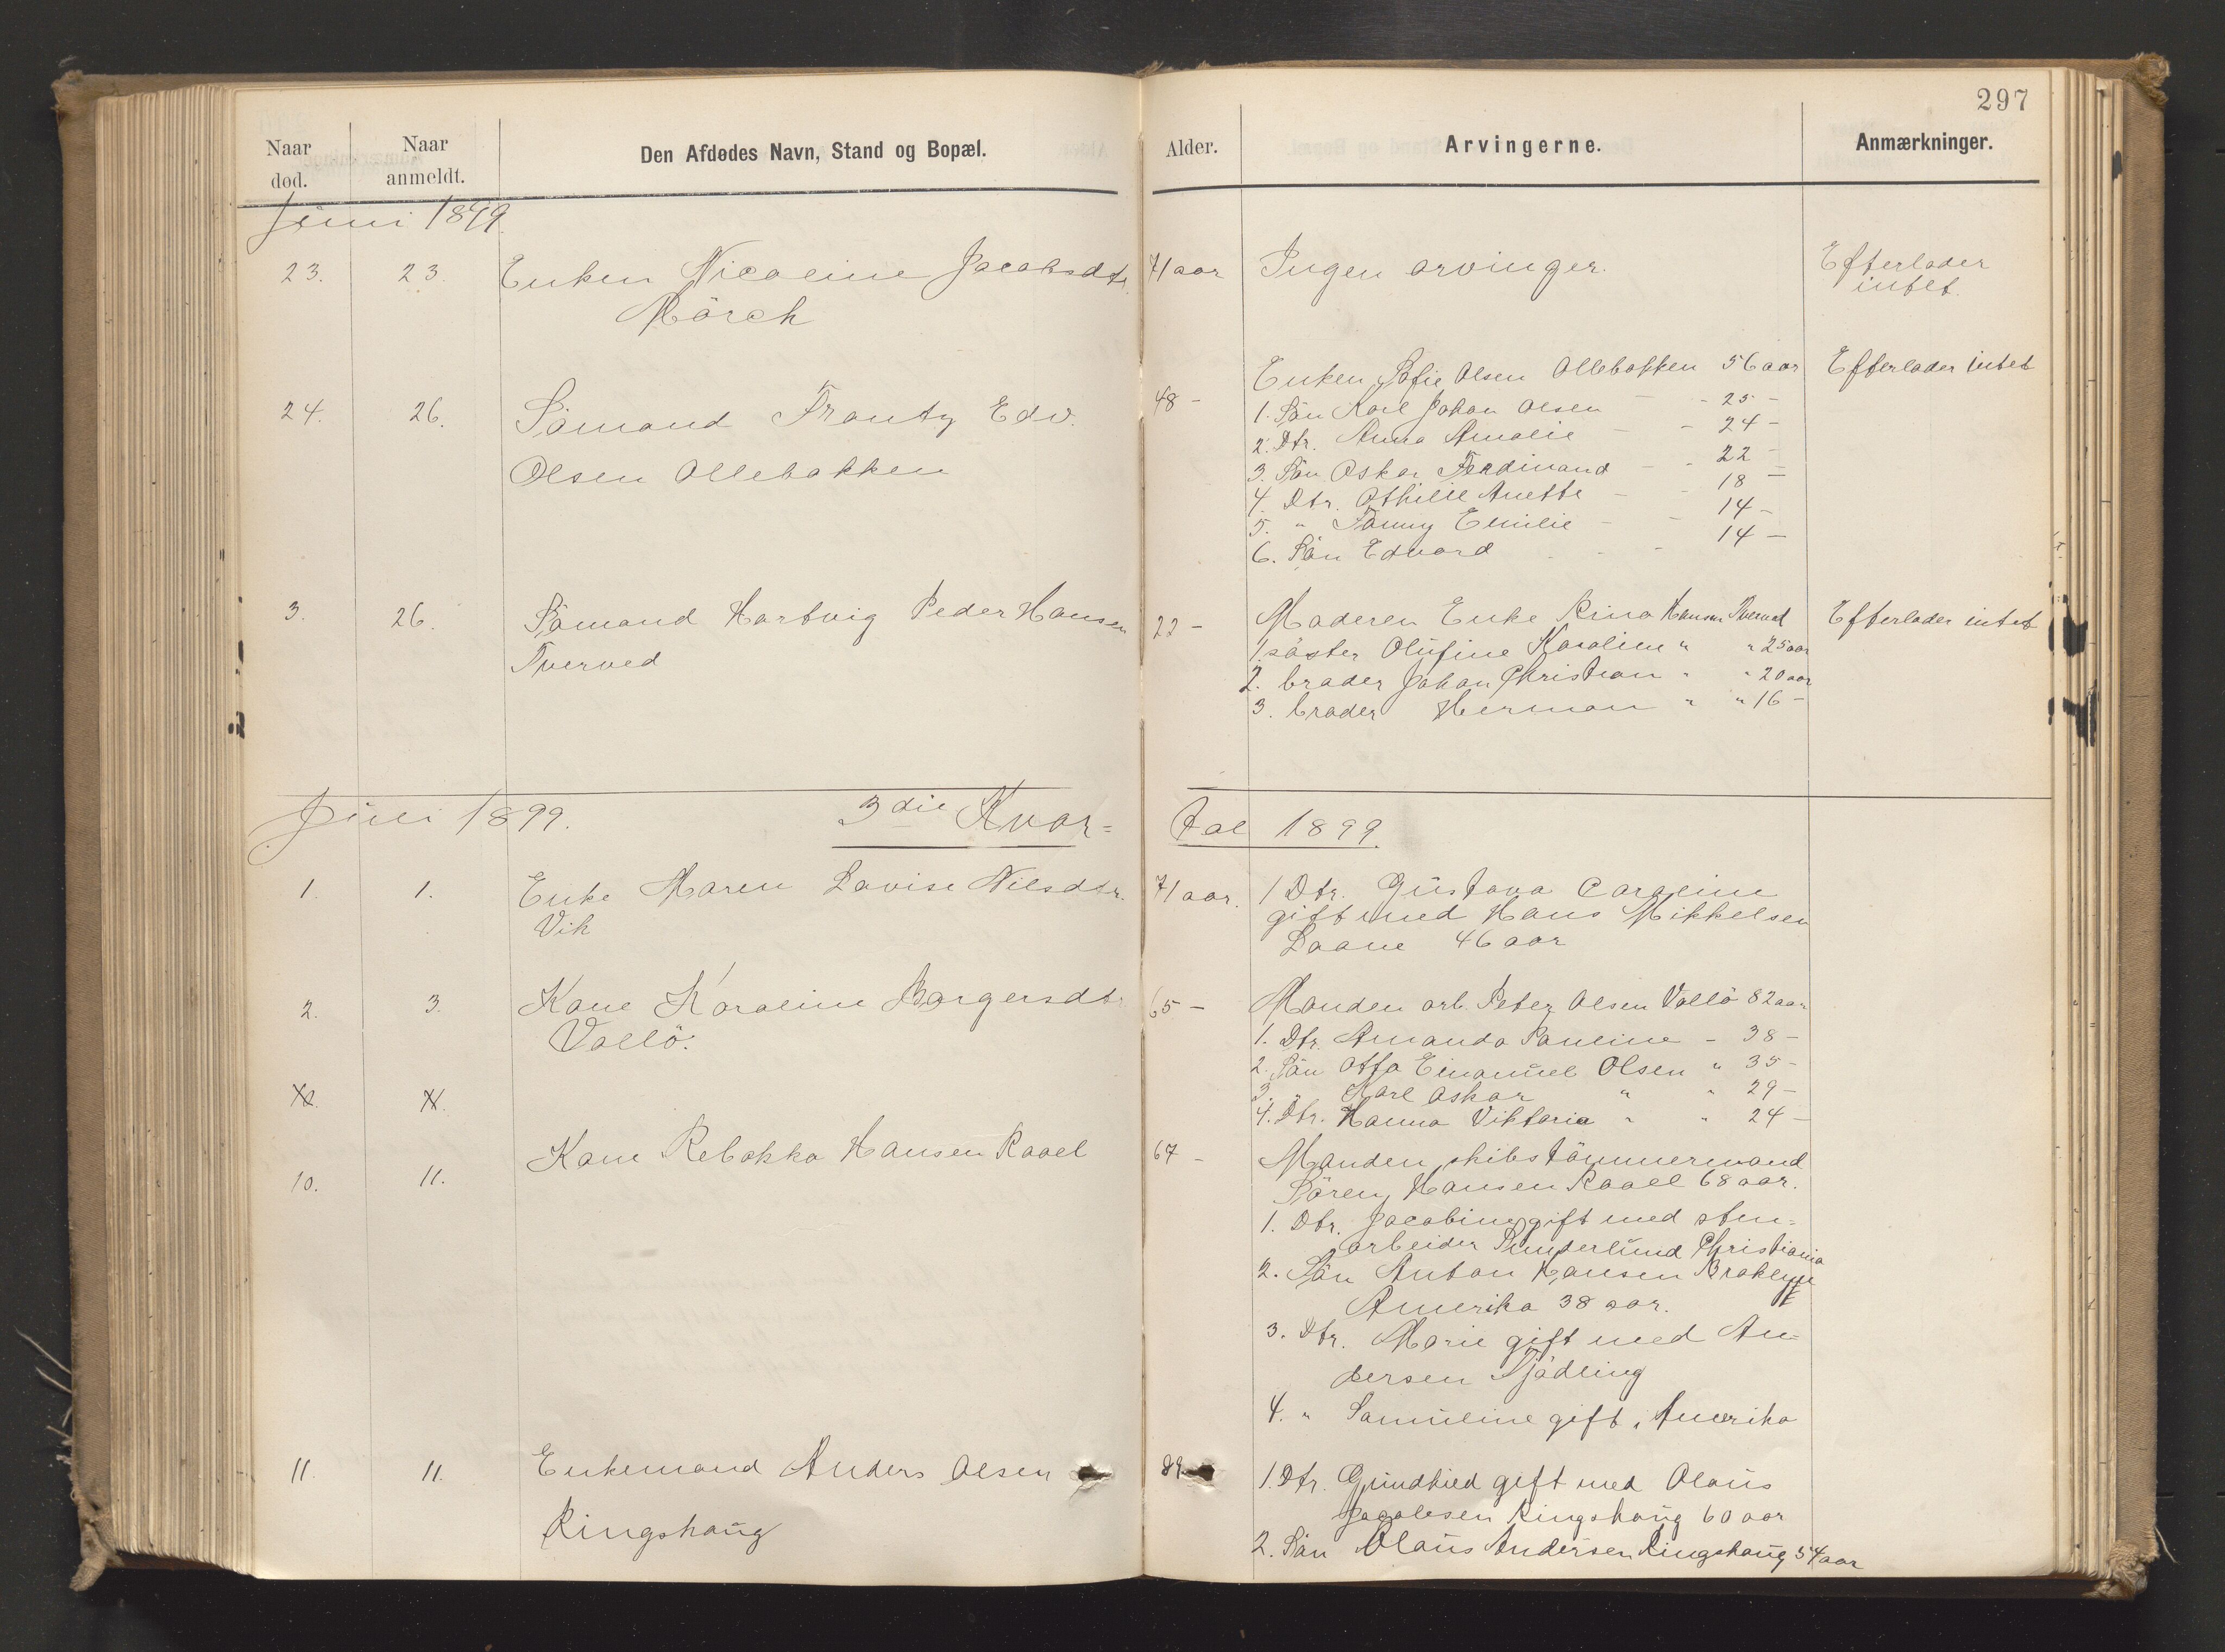 297
Naar død.
Naar anmeldt.
Den Afdødes Navn, Stand og Bopæl.
Alder.
Arvingerne.
Anmærkninger.
Juni 1899.
23. 23. Enken Nicoline Jacobsdtr. 71 aar Ingen arvinger. Efterlader
Mörch intet.
24. 26. Sömand Frantz Edv. 48 -
Olsen Ollebakken
Enken Sofie Olsen Ollebakken 56 aar Efterlader intet
1. Sön Karl Johan Olsen - - 25 -
2. Dtr. Anna Amalie - - 24 -
3. Sön Oskar Ferdinand - - 22 -
4. Dtr. Othilie Anette - - 18 -
5. " Fanny Emilie - - 14 -
6. Sön Edvard - - - 14 -
3. 26. Sömand Hartvig Peder Hansen 22 -
Tverved
Moderen Enke Rina Hansen Tverved Efterlader intet
1. söster Olufine Karoline " " 25 aar
2. broder Johan Christian " " 20 aar
3. broder Herman " " 16 -
Juli 1899. 3die Kvar=tal 1899.
1. 1. Enke Maren Lovise Nilsdtr. 71 aar.
Vik
1 Dtr. Gustava Caroline
gift med Hans Mikkelsen
Laane 46 aar
2. 3. Kone Karoline Borgersdtr 65 -
Vallö.
Manden arb. Peter Olsen Vallö 82 aar
1. Dtr. Amanda Pauline - 38 -
2. Sön Otto Emanuel Olsen " 35 -
3. " Karl Oskar " " 29 -
4. Dtr. Hanna Viktoria " " 24 -
10. 11. Kone Rebekka Hansen Raael 67 -
Manden, skibstömmermand
Sören Hansen Raael 68 aar.
1. Dtr. Jacobine gift med sten=
arbeider Sunderlund Christiania
2. Sön Anton Hansen Broklyn
Amerika 38 aar.
3. Dtr. Marie gift med An-
dersen Mjödling
4. " Samuline gift i Amerika
11. 11. Enkemand Anders Olsen 89
Ringshaug
1. Dtr. Gundhild gift med Olaus
Jacobsen Ringshaug 60 aar
2. Sön Olaus Andersen Ringshaug 54 aar